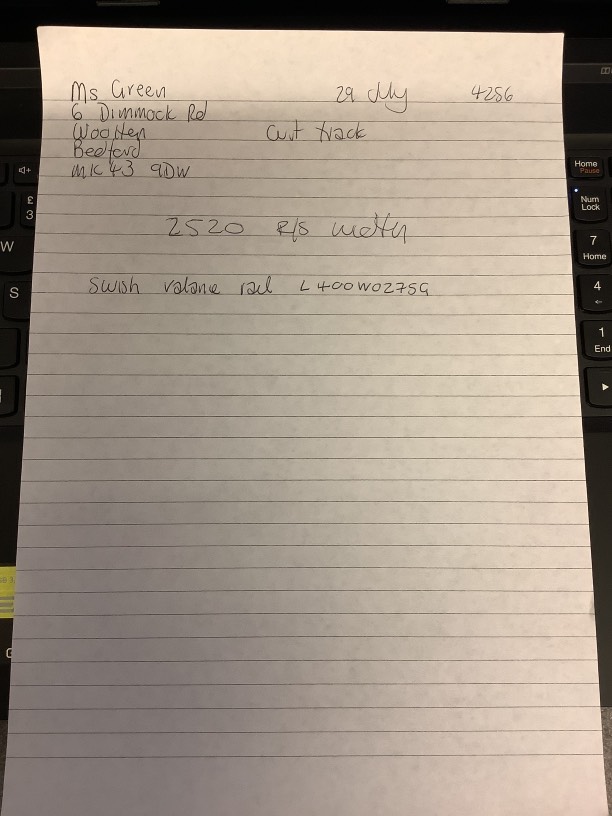 Ms Green 29 July 4256
6 Dimmock Rd
Wootten Curt track
Bedford
MK43 9DW
2520 R/S
Swish valance rail L400W0275G
Home
Pause
£
3
Num
Lock
W
7
Home
S
4
←
1
End
G